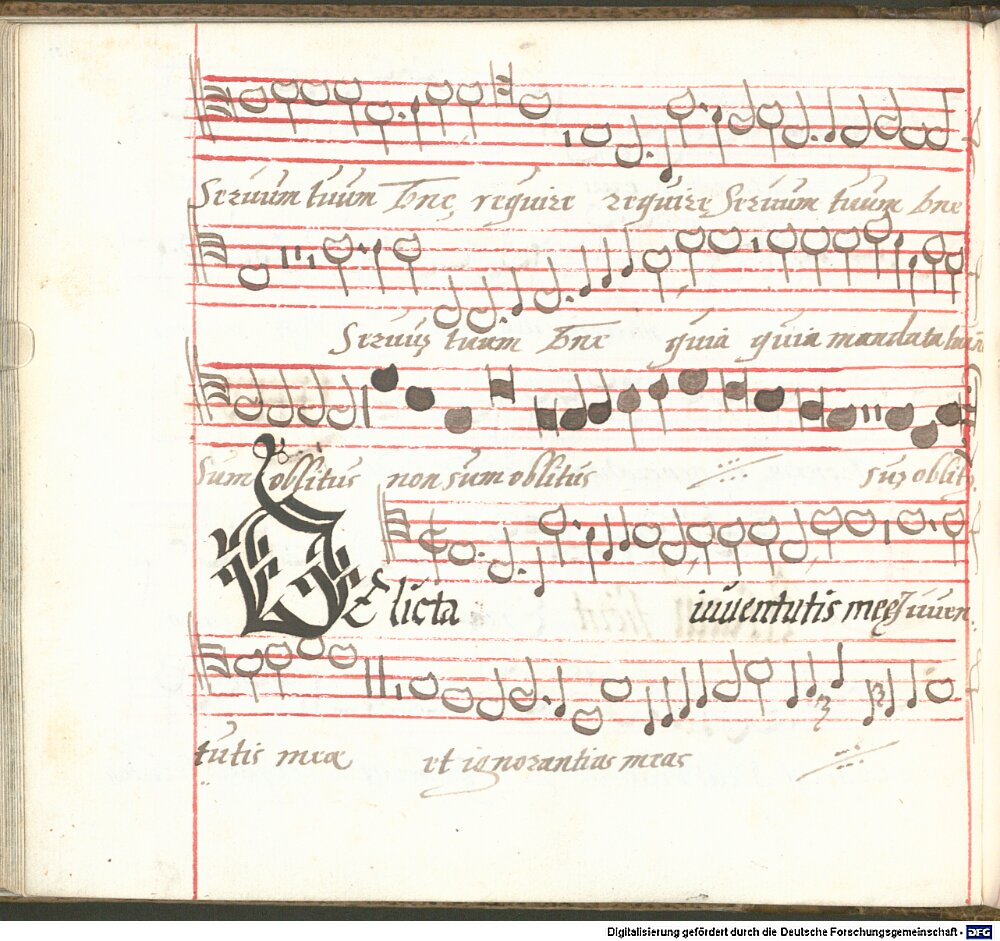 Servum tuum Dne require require Servum tuum Dne
Servuʒ tuum Dne quia quia mandata tua
Sum oblitus non sum oblitus suʒ oblitʒ
DElicta iuventutis meę Iuven
tutis meæ et ignorantias meas
Digitalisierung gefördert durch die Deutsche Forschungsgemeinschaft - DFG